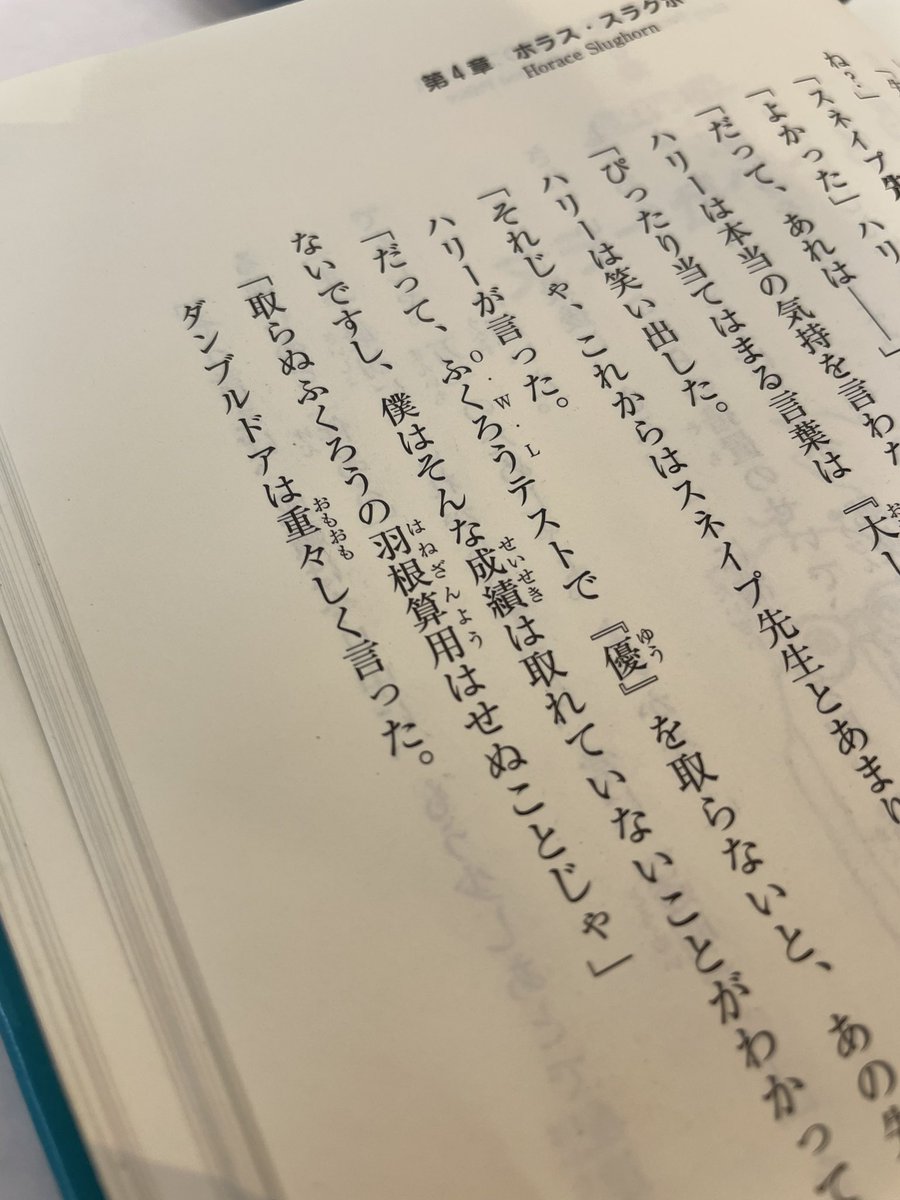 第4章 ホラス・スラグホ
Horace Slughorn
ね?」
「スネイプ先
「よかった」ハリ
「だって、あれは――」
ハリーは本当の気持を言わた
「ぴったり当てはまる言葉は『大し
ハリーは笑い出した。
「それじゃ、これからはスネイプ先生とあまり
ハリーが言った。
「だって、ふくろうテストで『優』を取らないと、あの先
O・W・L
ゆう
ないですし、僕はそんな成績は取れていないことがわかって
せいせき
「取らぬふくろうの羽根算用はせぬことじゃ」
はねざんよう
ダンブルドアは重々しく言った。
おもおも